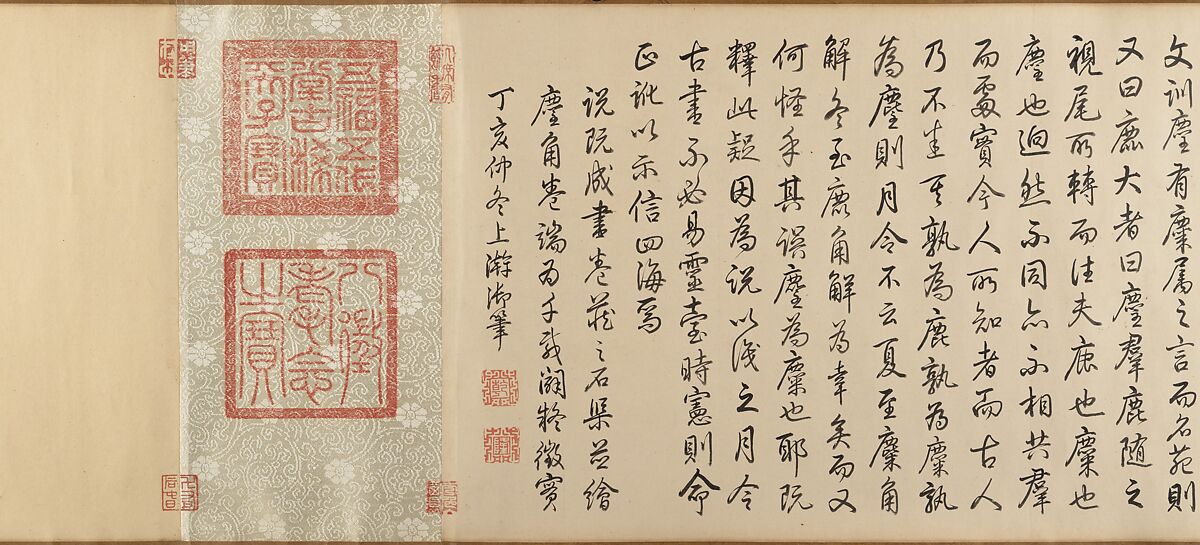 文訓麈有麋屬之言而名苑則
又曰鹿大者曰麈羣鹿随之
視尾所轉而往夫鹿也麋也
麈也迥然不同亦不相共羣
而處實今人所知者而古人
乃不悉孰為鹿孰為麋孰
為麈則月令不云夏至麋角
解冬至鹿角解為幸矣而又
何怪乎其誤麈為麋也耶既
釋此疑因為說以識之月令
古書不必易靈臺時憲則命
正訛以示信四海焉
說既成書卷藏之石渠並繪
麈角卷端為千載闢疑徵實
丁亥仲冬上澣御筆
五福五代
堂古稀
天子寶
八徵
耄念
之寶